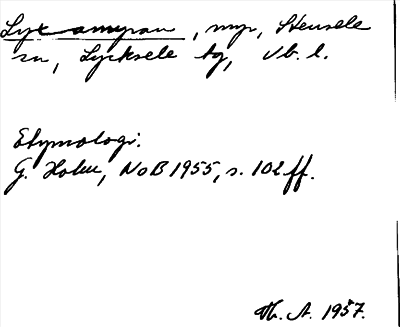 Lyckamyran, myr, Stensele
sn, Lycksele tg, Vb. l.
Etymologi:
G. Holm, NoB 1955, s. 102 ff.
Th. A. 1957.